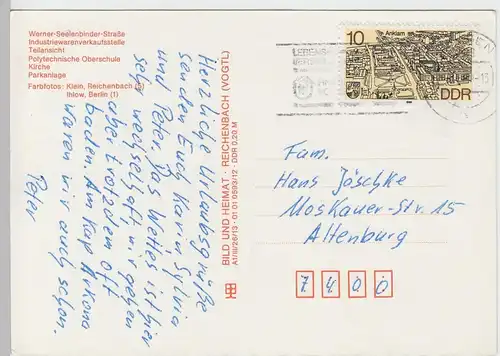 Werner-Seelenbinder-Straße
Industriewarenverkaufsstelle
Teilansicht
Polytechnische Oberschule
Kirche
Parkanlage
Farbfotos: Klein, Reichenbach (5)
Ihlow, Berlin (1)
Herzliche Urlaubsgrüße
senden Euch Karin, Sylvia
und Peter. Das Wetter ist hier
sehr wechselhaft, wir gehen
aber trotzdem oft
baden. Am Kap Arkona
waren wir auch schon.
Peter
BILD UND HEIMAT · REICHENBACH (VOGTL)
A1/III/26/13 · 01 01 0593/12 · DDR 0.20 M
10
Anklam
DDR
Fam.
Hans Jöschke
Moskauer-Str. 15
Altenburg
7400